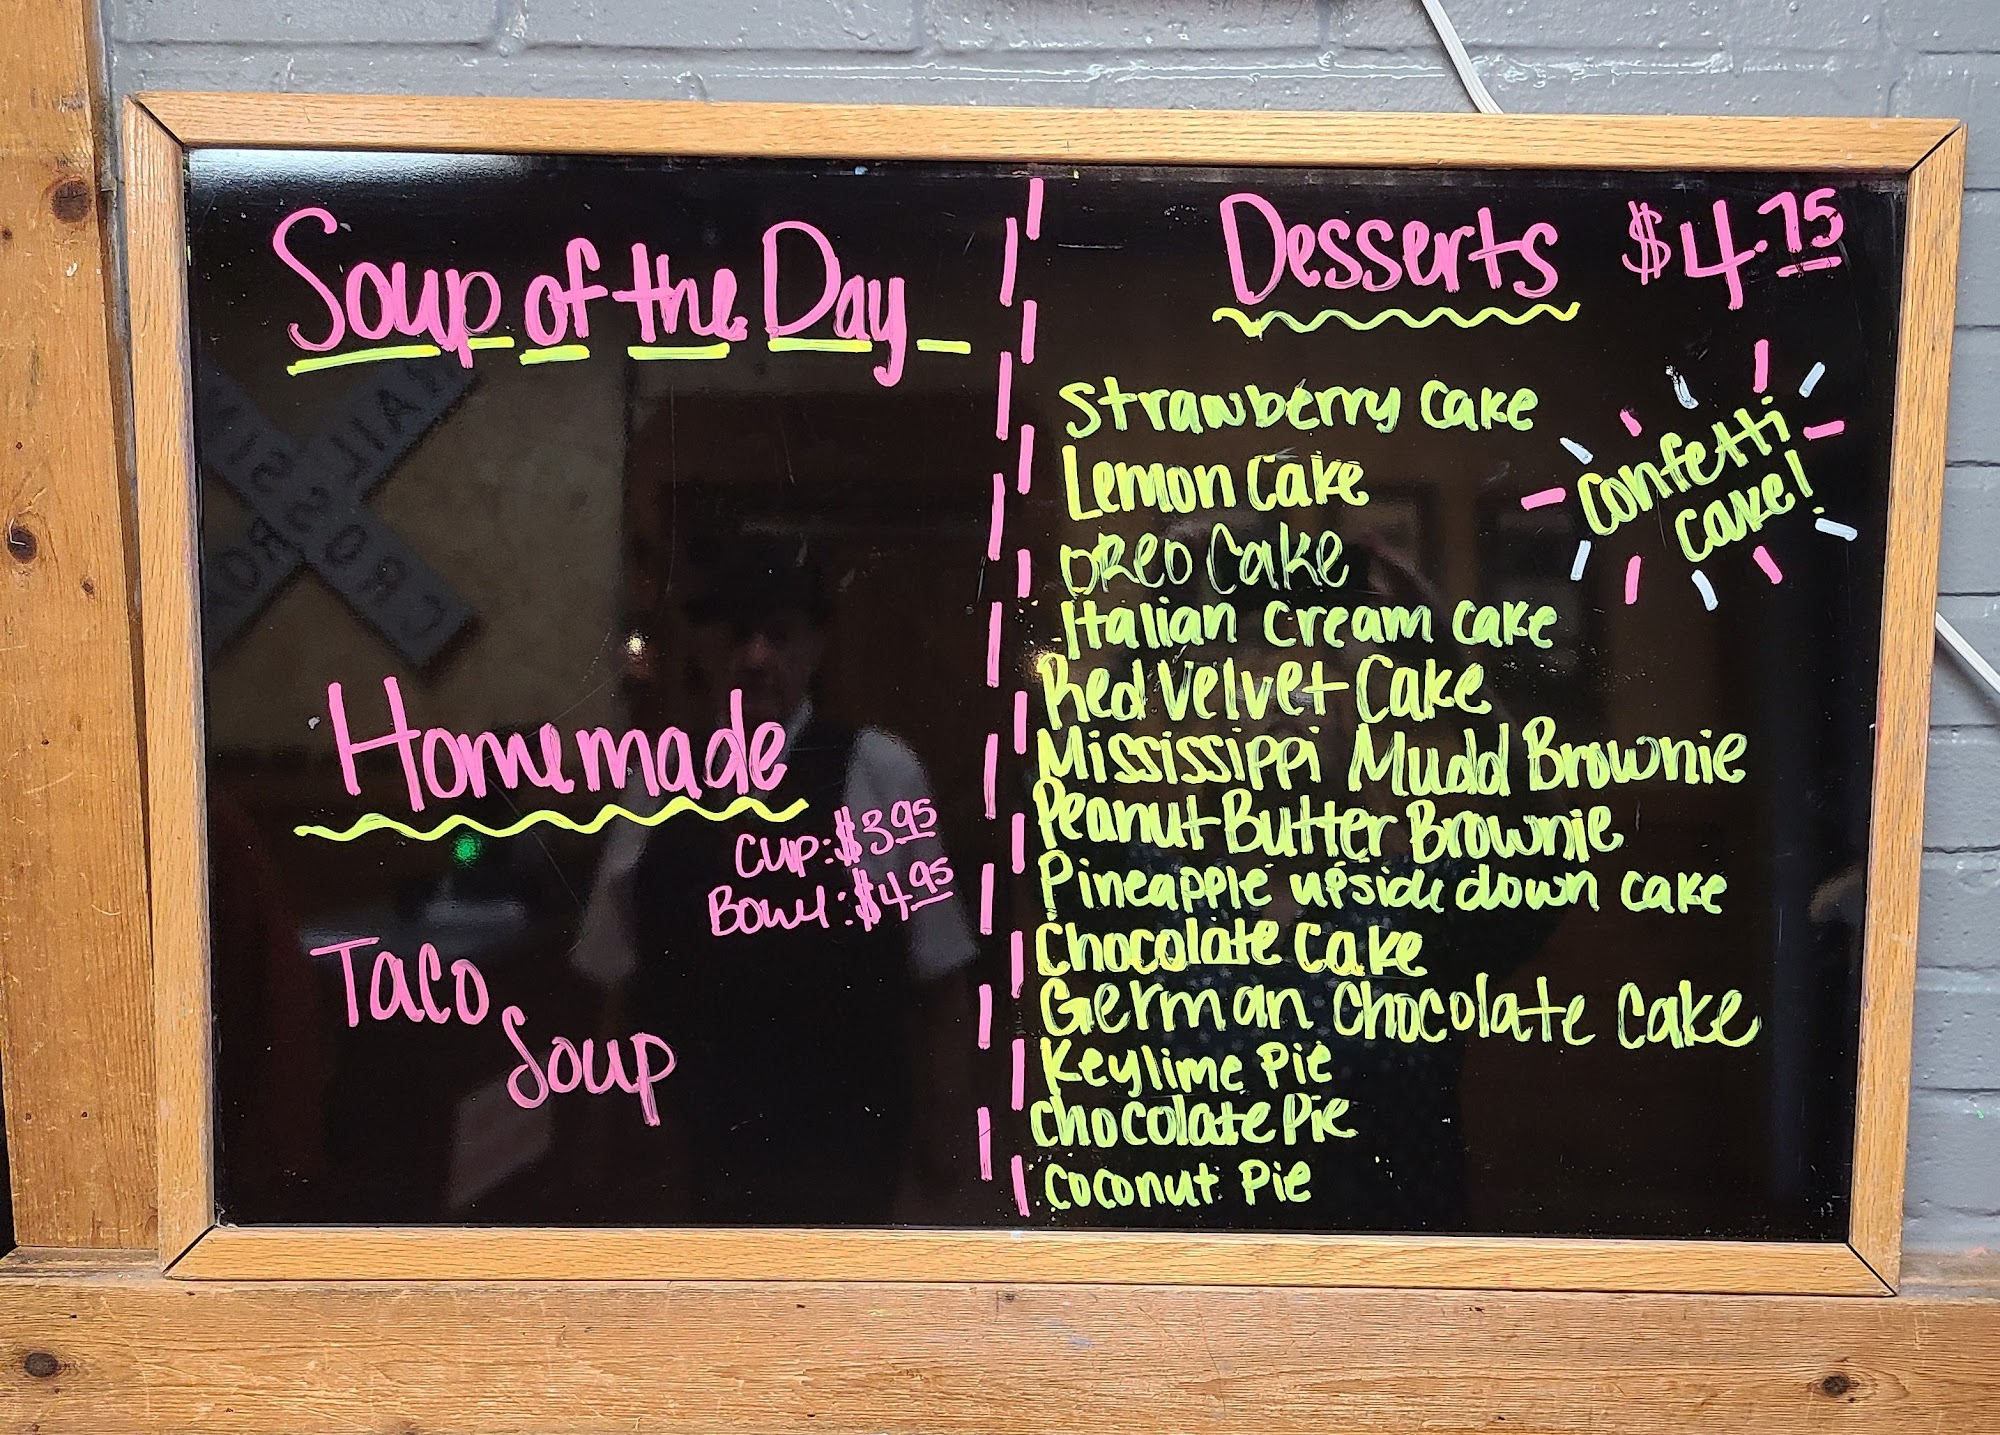 Soup of the Day
Homemade
Cup: $3.95
Bowl: $4.95
Taco
Soup
Desserts $4.75
Strawberry Cake
Lemon Cake
OREO Cake
Italian Cream Cake
Red Velvet Cake
Mississippi Mudd Brownie
Peanut Butter Brownie
Pineapple upside down cake
Chocolate Cake
German Chocolate Cake
Keylime Pie
Chocolate Pie
Coconut Pie
Confetti
Cake!
RAIL
CROSSI